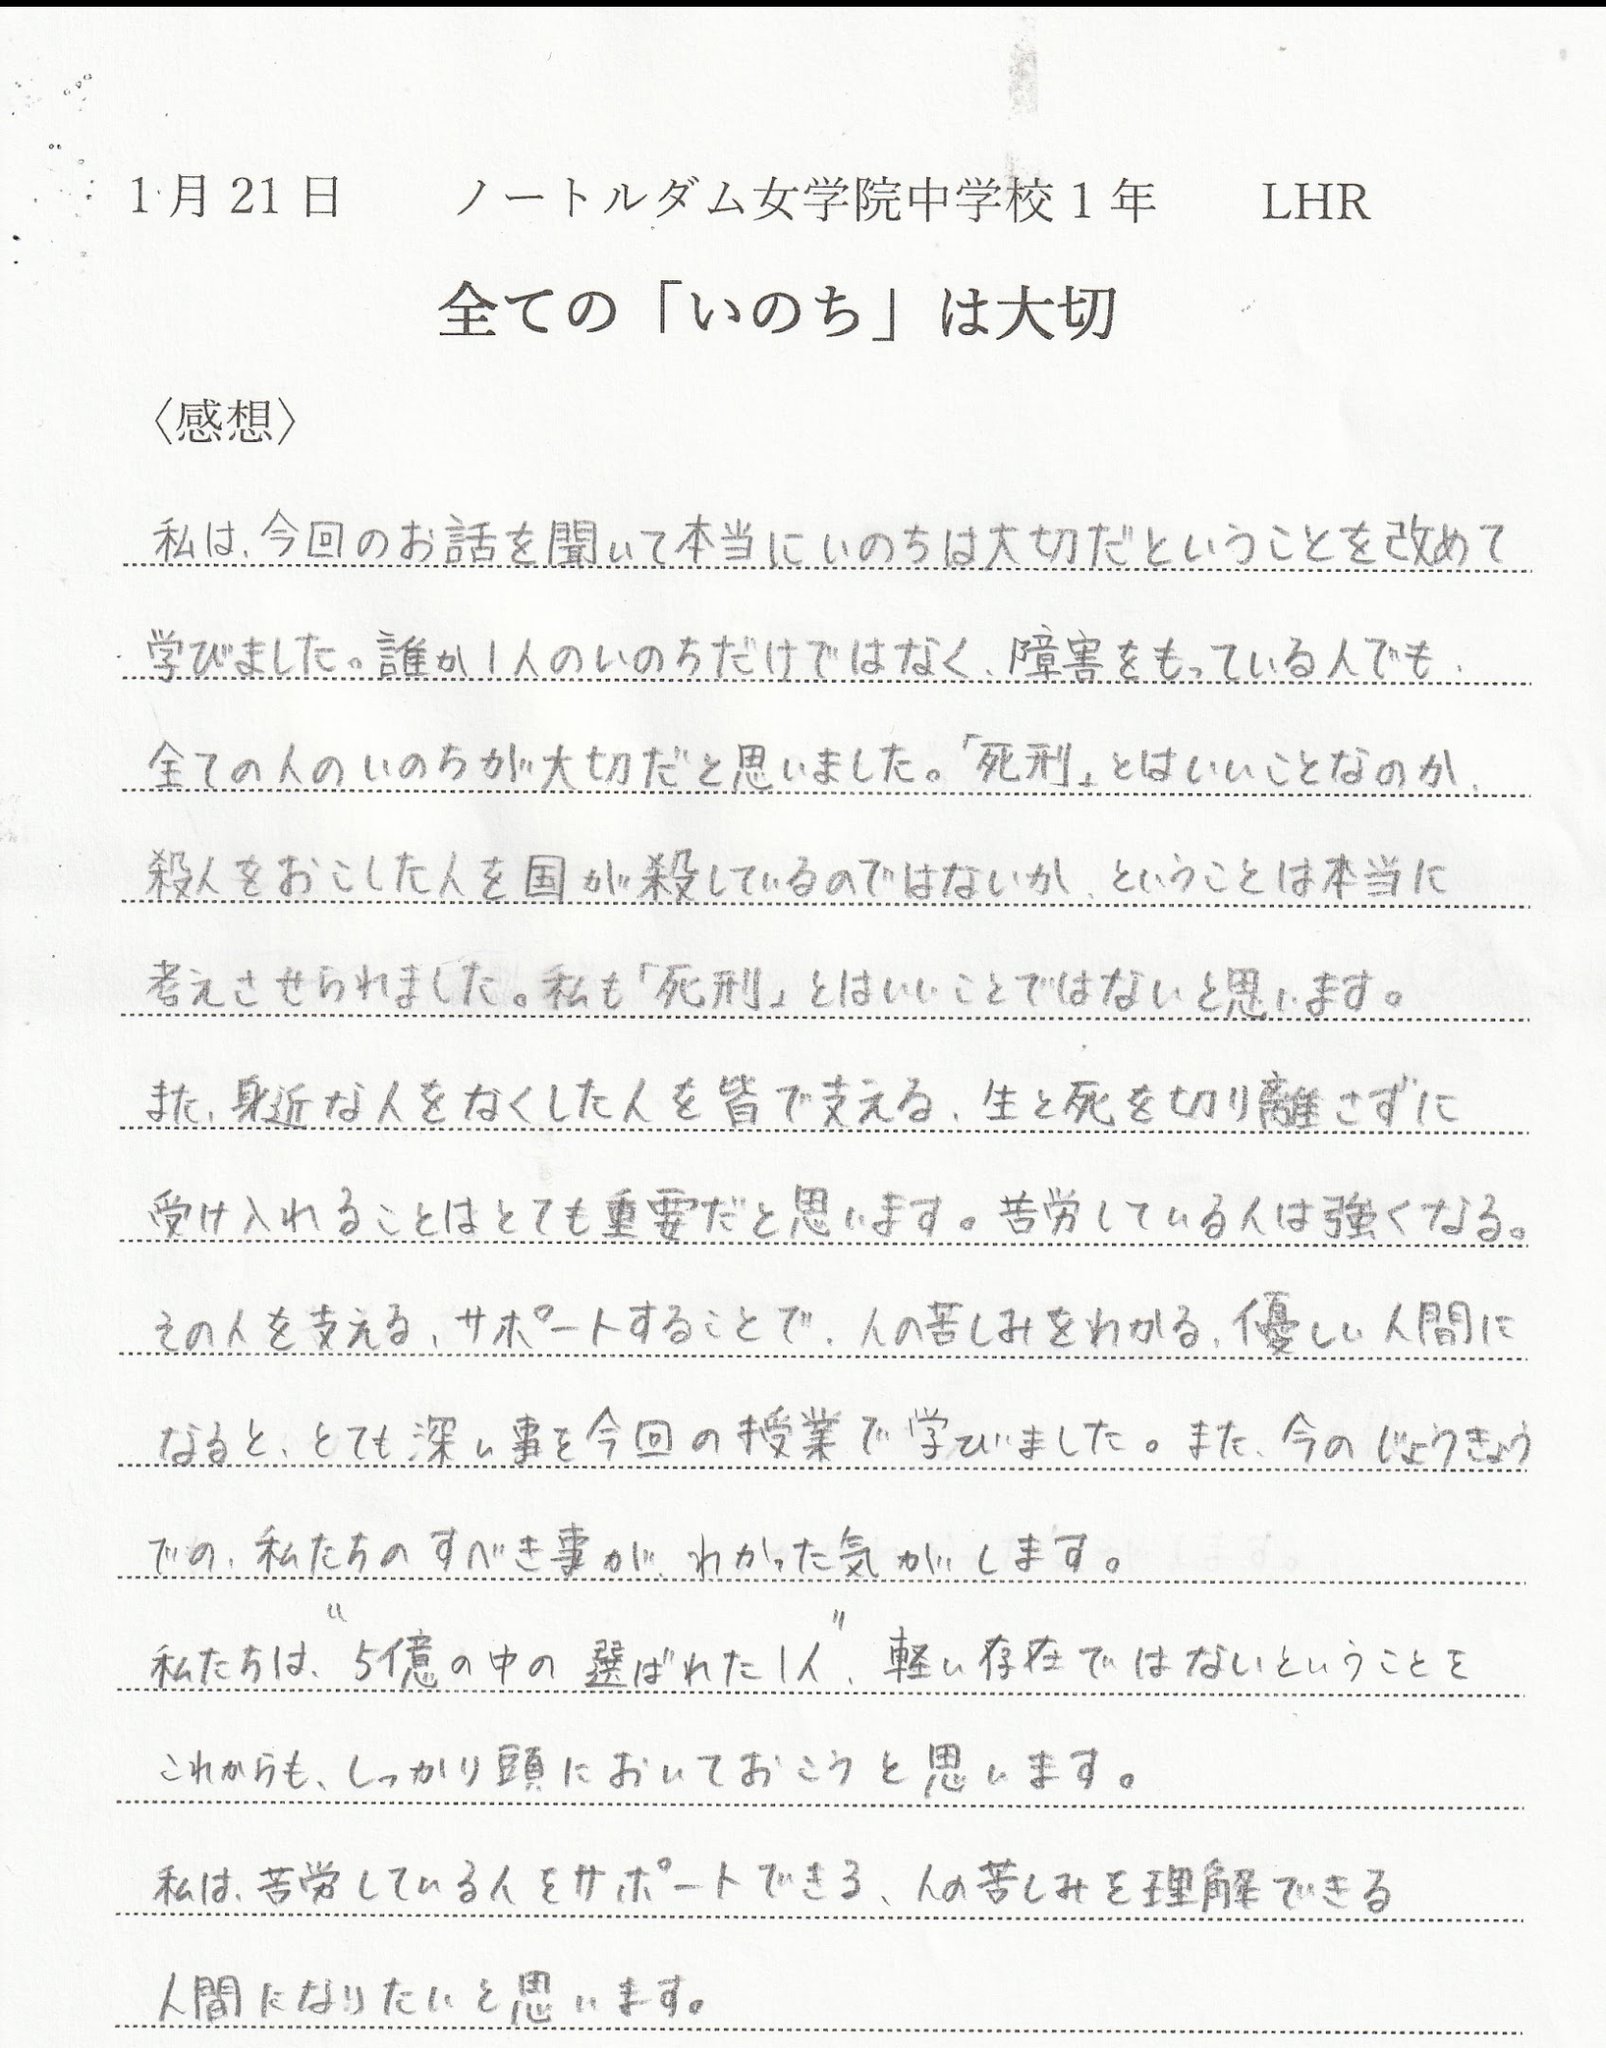 1月21日　ノートルダム女学院中学校1年　LHR
全ての「いのち」は大切
〈感想〉
私は、今回のお話を聞いて本当にいのちは大切だということを改めて
学びました。誰か1人のいのちだけではなく、障害をもっている人でも、
全ての人のいのちが大切だと思いました。「死刑」とはいいことなのか、
殺人をおこした人を国が殺しているのではないか、ということは本当に
考えさせられました。私も「死刑」とはいいことではないと思います。
また、身近な人をなくした人を皆で支える、生と死を切り離さずに
受け入れることはとても重要だと思います。苦労している人は強くなる。
その人を支える、サポートすることで、人の苦しみをわかる、優しい人間に
なると、とても深い事を今回の授業で学びました。また、今のじょうきょう
での、私たちのすべき事が、わかった気がします。
私たちは、“5億の中の選ばれた1人”、軽い存在ではないということを
これからも、しっかり頭においておこうと思います。
私は、苦労している人をサポートできる、人の苦しみを理解できる
人間になりたいと思います。